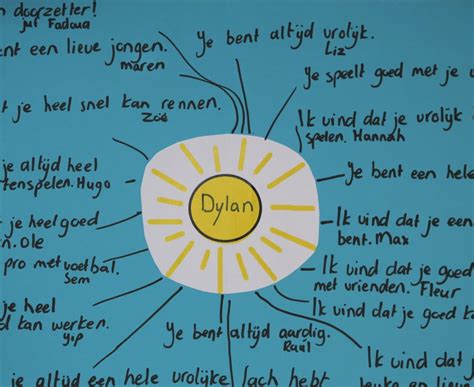 n doorzetter!
juf Fadoua
nt een lieve jongen.
maren
Je bent altijd vrolijk.
Liz
Je speelt goed met je v
t je heel snel kan rennen.
Zoë
Ik vind dat je vrolijk
spelen. Hannah
je altijd heel
tenspelen. Hugo
Je bent een hele
Dylan
je heel goed
n. Ole
Ik vind dat je een
bent. Max
pro met voetbal.
Sem
Ik vind dat je goed
met vrienden. Fleur
je heel
d kan werken.
Yip
Ik vind dat je goed ka
Je bent altijd aardig.
Raúl
Ik vind dat
je altijd een hele vrolijke lach hebt
leuke en lie